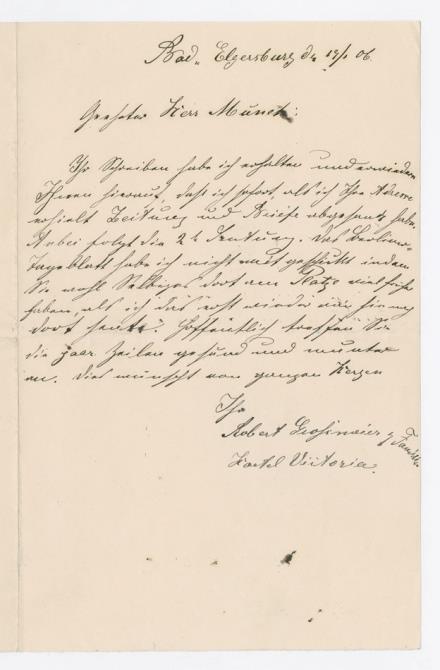 Bad Elgersburg d. 19/1 06.
Geehrter Herr Munch:
Ihr Schreiben habe ich erhalten und erwiedere
Ihnen hierauf, daß ich sofort, als ich Ihre Adresse
erhielt Zeitung und Briefe abgesandt habe.
Anbei folgt die 2te Sendung. Das Berliner
Tageblatt habe ich nicht mit geschickt indem
Sie wohl Selbiges dort am Platze viel früher
haben, als ich das erst wieder von hier
dort sende. Hoffentlich treffen Sie
die paar Zeilen gesund und munter
an. Dies wünscht von ganzem Herzen
Ihr
Robert u. Familie
Hotel Victoria.